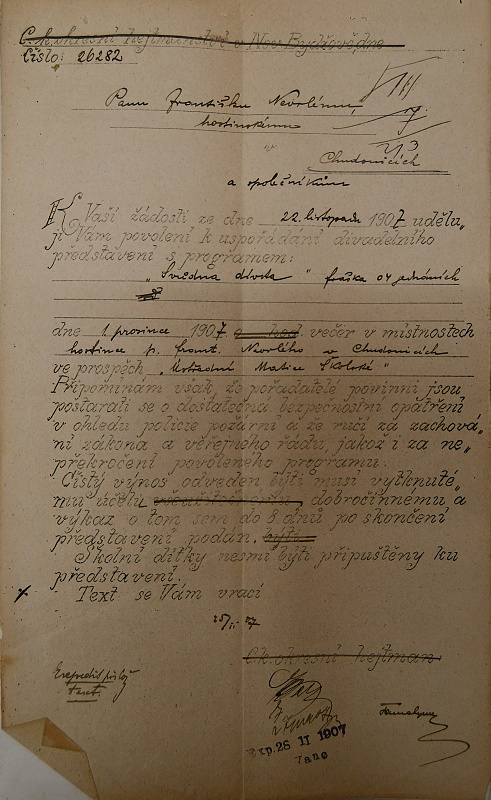 C. k. okresní hejtmanství v Nov. Bydžově, dne
Číslo: 26282
Panu Františku Nevolému,
hostinskému
v
Chudonicích
a společníkům
K Vaší žádosti ze dne 22. listopadu 1907 udělu„
ji Vám povolení k uspořádání divadelního
představení s programem:
„ dívka " fraška o 4 jednáních
dne 1. prosince 1907 o hod. večer v místnostech
hostince p. Frant. Nevolého v Chudonicích
ve prospěch „Ústřední Matice Školské"
Připomínám však, že pořadatelé povinni jsou
postarati se o dostatečná bezpečnostní opatření
v ohledu policie požární a že ručí za zachová„
ní zákona a veřejného řádu, jakož i za ne„
překročení povoleného programu.
Čistý výnos odveden býti musí vytknuté„
mu účelu dobročinnému a
výkaz o tom sem do 8 dnů po skončení
představení podán, býti.
Školní dítky nesmí býti připuštěny ku
představení.
Text se Vám vrací
25/11 07
C. k. okresní hejtman:
text.
Exp. 26 II 1907